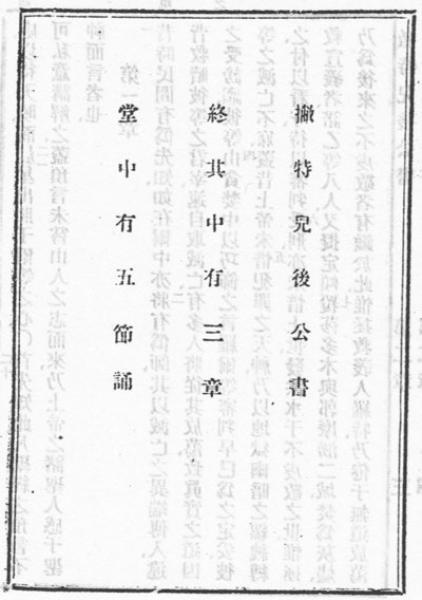 撇特兒後公書
終其中有三章
堂中有五節誦